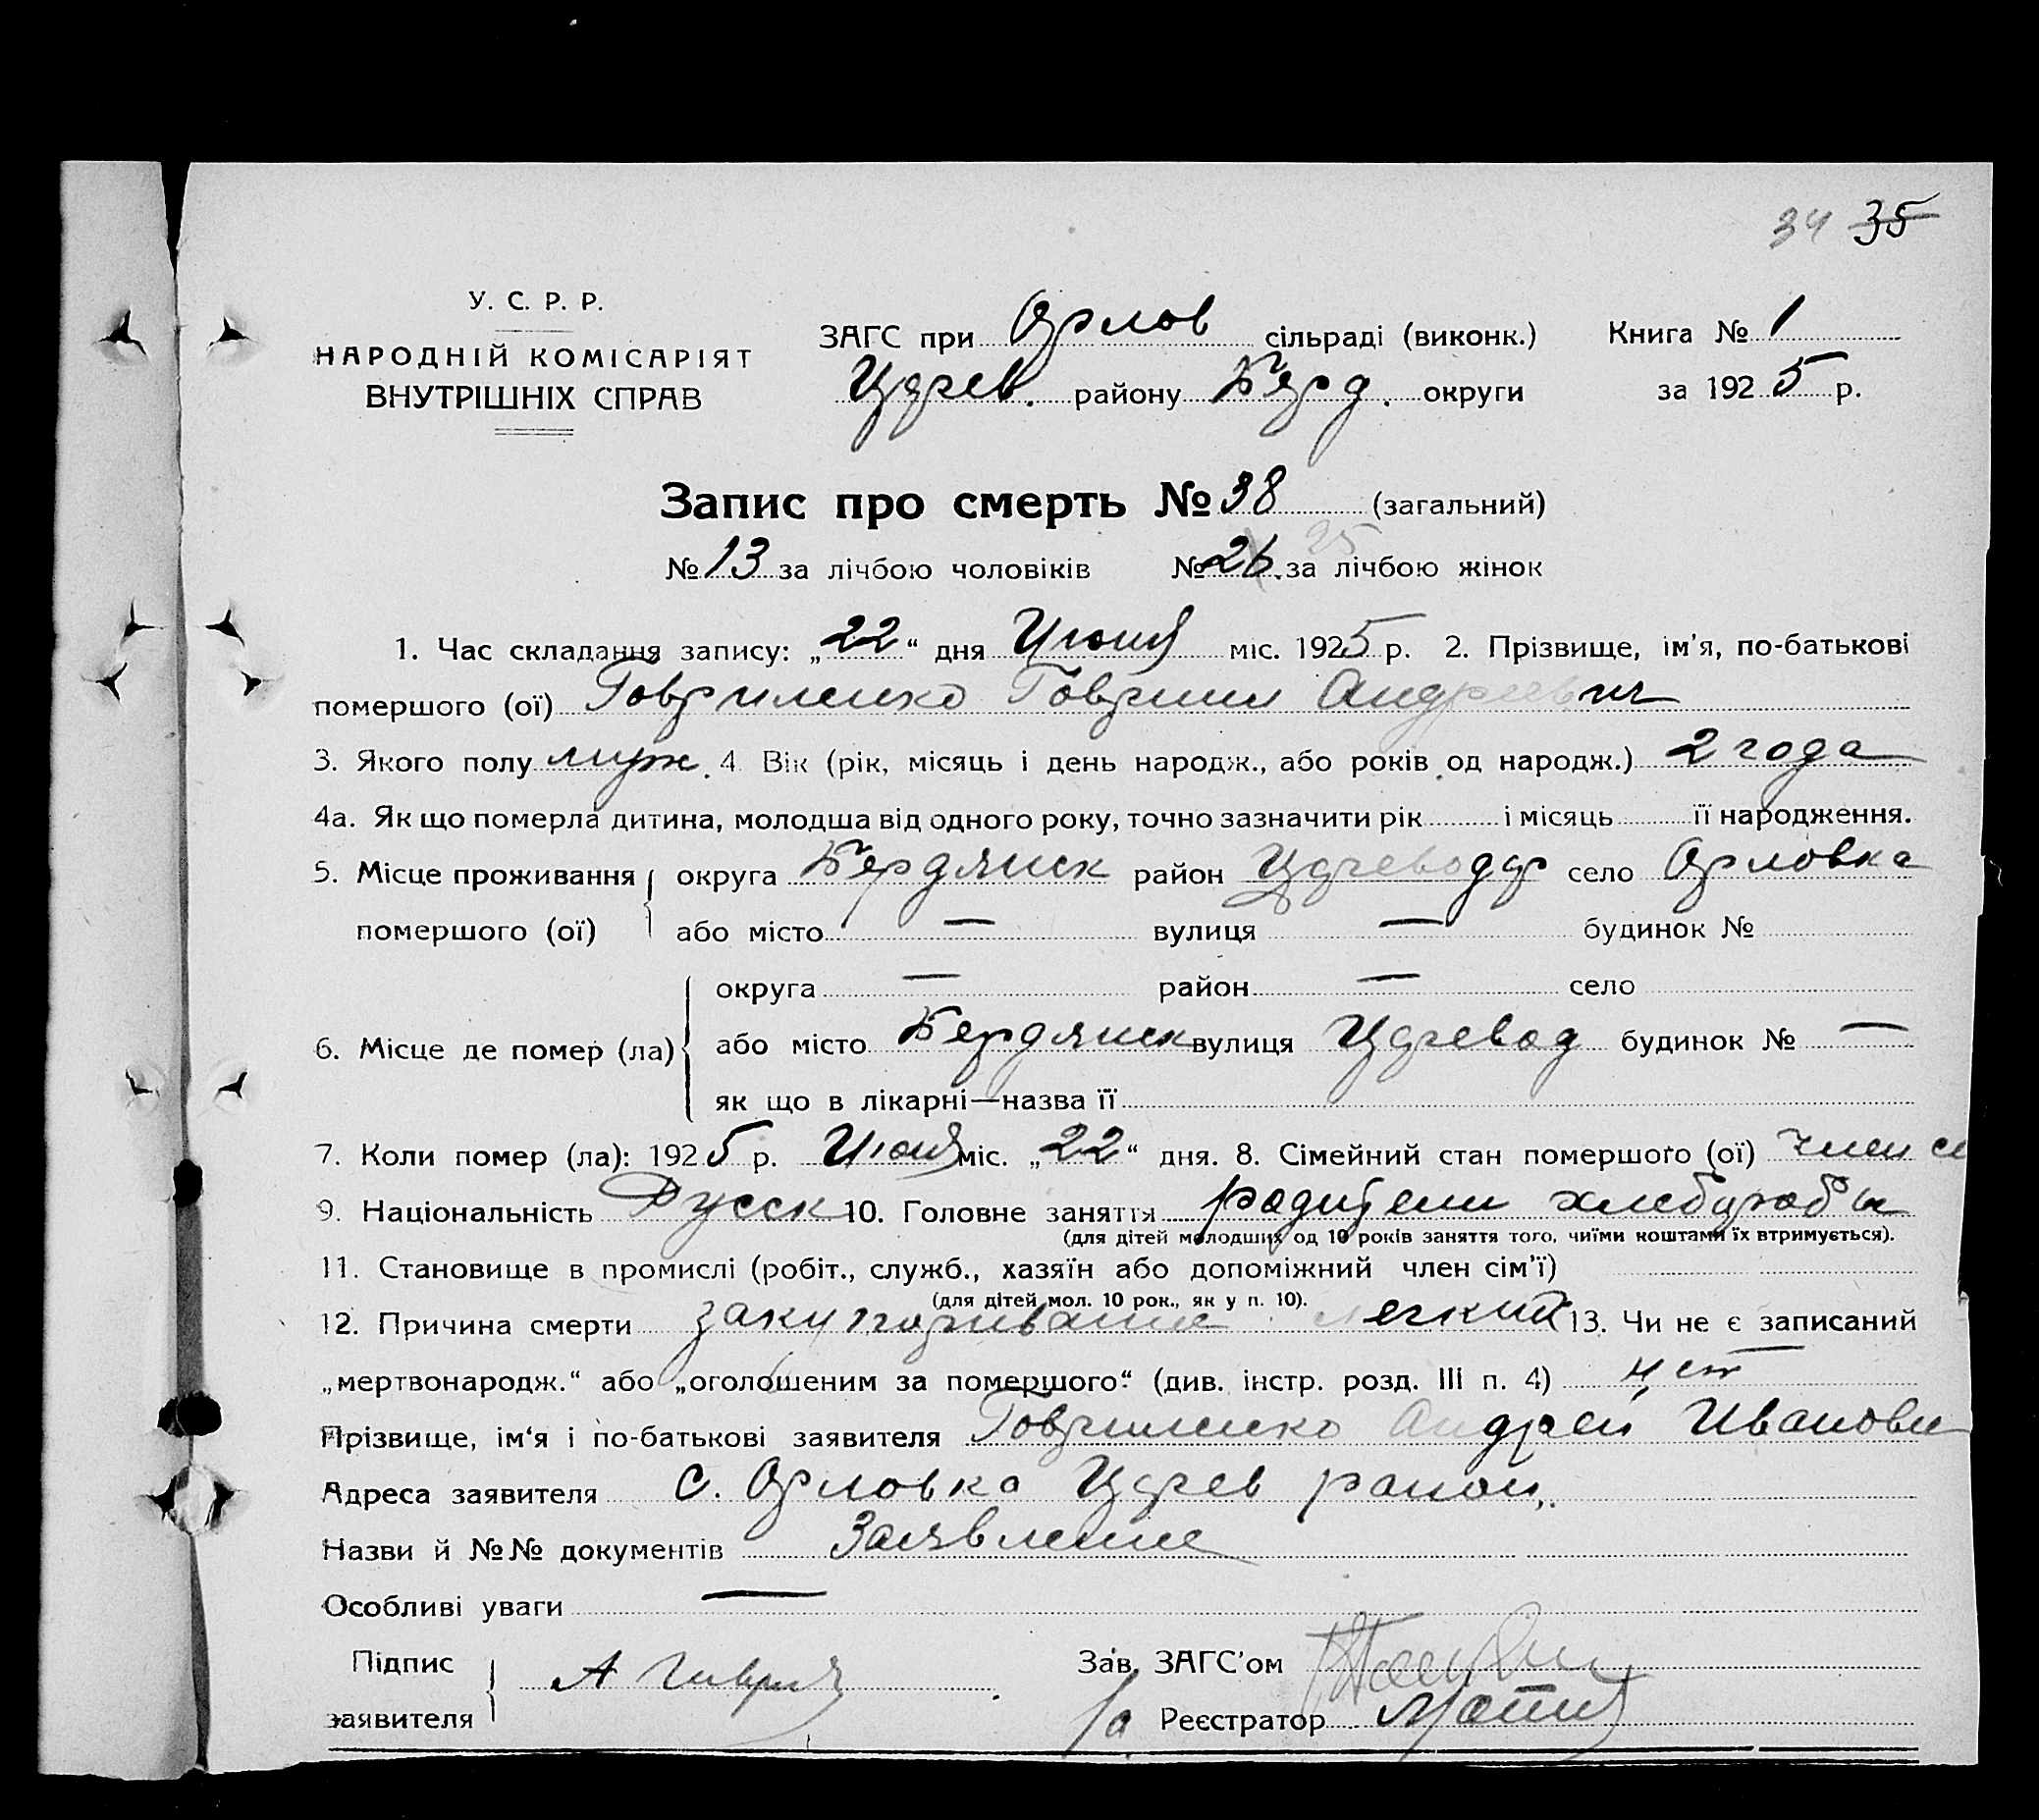 34 35
У. С. Р. Р.
НАРОДНІЙ КОМІСАРІЯТ
ВНУТРІШНІХ СПРАВ
ЗАГС при Орлов сільраді (виконк.) Книга № 1
Цдрев. району Берд. округи за 1925 р.
Запис про смерть № 38 (загальний)
25
№ 13 за лічбою чоловіків № 26 за лічбою жінок
1. Час складання запису: „22“ дня Июня міс. 1925 р. 2. Прізвище, ім'я, по-батькові
помершого (ої) Гавриленко Гаврил Андреевич
3. Якого полу муж. 4. Вік (рік, місяць і день народж., або років од народж.) 2 года
4а. Як що померла дитина, молодша від одного року, точно зазначити рік і місяць її народження.
5. Місце проживання округа Бердянск район село Орловка
помершого (ої) або місто — вулиця — будинок №
округа — район — село
6. Місце де помер (ла) або місто Бердянск вулиця будинок № —
як що в лікарні—назва її
7. Коли помер (ла): 1925 р. Июня міс. „22“ дня. 8. Сімейний стан помершого (ої) член се
9. Національність Русск 10. Головне заняття родители хлеборобы
(для дітей молодших од 10 років заняття того, чиїми коштами їх втримується).
11. Становище в промислі (робіт., служб., хазяїн або допоміжний член сім'ї)
(для дітей мол. 10 рок., як у п. 10).
12. Причина смерти закупоривание легких 13. Чи не є записаний
„мертвонародж.“ або „оголошеним за помершого“ (див. інстр. розд. III п. 4) нет
Прізвище, ім'я і по-батькові заявителя Гавриленко Андрей Иванови
Адреса заявителя с. Орловка Цдрев район.
Назви й №№ документів Заявление
Особливі уваги —
Підпис А Гаврил Зав. ЗАГС'ом
заявителя Реєстратор